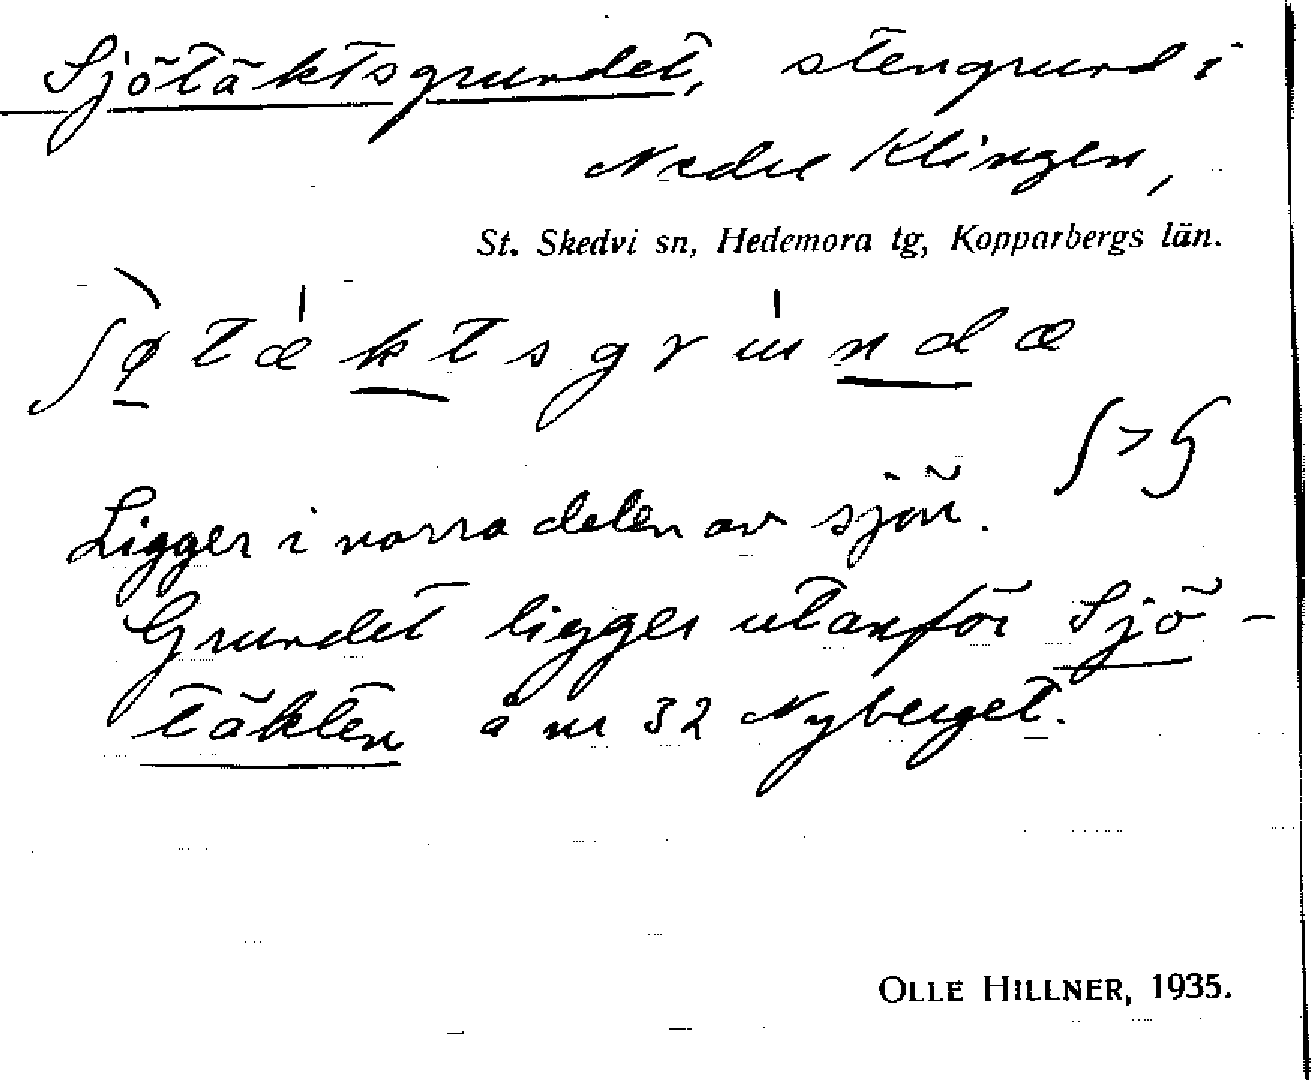 Sjötäktsgrundet, stengrund i
Nedre Klingen,
St. Skedvi sn, Hedemora tg, Kopparbergs län.
ʃø̀tæ'ktsgrɯ'ndæ
ʃ > ʂ
Ligger i norra delen av sjön.
Grundet ligger utanför Sjö-
täkten å nr 32 Nyberget.
OLLE HILLNER, 1935.